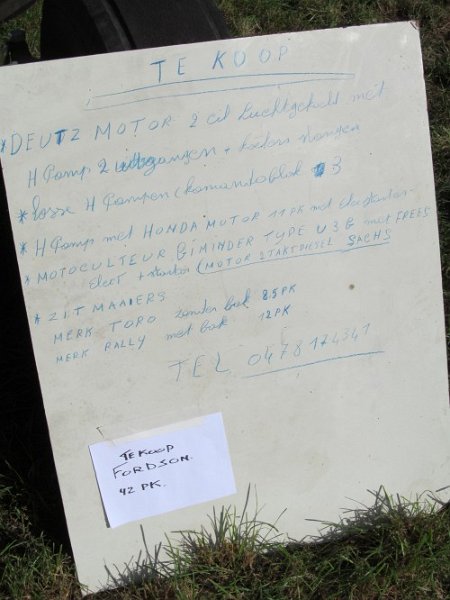 TE KOOP
* DEUTZ MOTOR 2 cil Luchtgekoelt met
H Pomp 2 uitgangen +
* Losse H Pompen (komandoblok 3
* H Pomp met HONDA MOTOR 11 PK met
* MOTOCULTEUR TYPE U 3 B met FREES
Elect + starter (MOTOR 2 TAKT DIESEL SACHS
* ZIT MAAIERS
MERK TORO zonder bak 8.5 PK
MERK RALLY met bak 12 PK
TEL 0478 174341
TE KOOP
FORDSON.
42 PK.